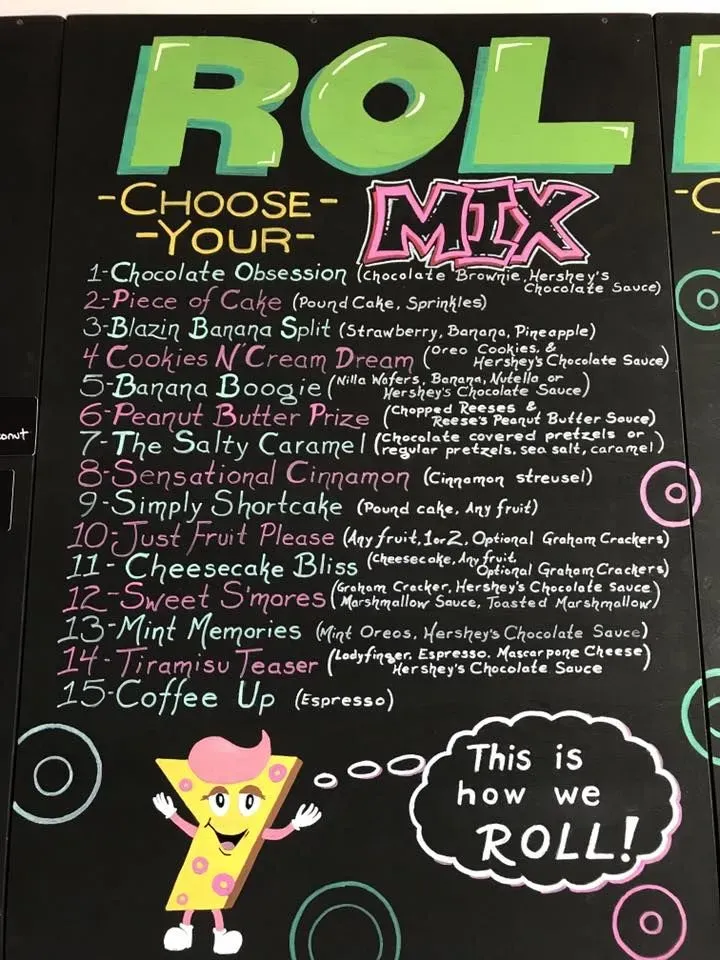 ROL
-CHOOSE-
-YOUR-
MIX
1-Chocolate Obsession (Chocolate Brownie, Hershey's
Chocolate Sauce)
2-Piece of Cake (Pound Cake, Sprinkles)
3-Blazin Banana Split (Strawberry, Banana, Pineapple)
4 Cookies N' Cream Dream (Oreo Cookies, &
Hershey's Chocolate Sauce)
5-Banana Boogie (Nilla Wafers, Banana, Nutella or
Hershey's Chocolate Sauce)
6-Peanut Butter Prize (Chopped Reeses &
Reese's Peanut Butter Sauce)
7-The Salty Caramel (Chocolate covered pretzels or
regular pretzels, sea salt, caramel)
8-Sensational Cinnamon (Cinnamon streusel)
9-Simply Shortcake (Pound cake, Any fruit)
10-Just Fruit Please (Any fruit, 1 or 2, Optional Graham Crackers)
11- Cheesecake Bliss (Cheesecake, Any fruit,
Optional Graham Crackers)
12-Sweet S'mores (Graham Cracker, Hershey's Chocolate Sauce
Marshmallow Sauce, Toasted Marshmallow)
13-Mint Memories (Mint Oreos, Hershey's Chocolate Sauce)
14-Tiramisu Teaser (Ladyfinger, Espresso, Mascarpone Cheese)
Hershey's Chocolate Sauce
15-Coffee Up (Espresso)
This is
how we
ROLL!